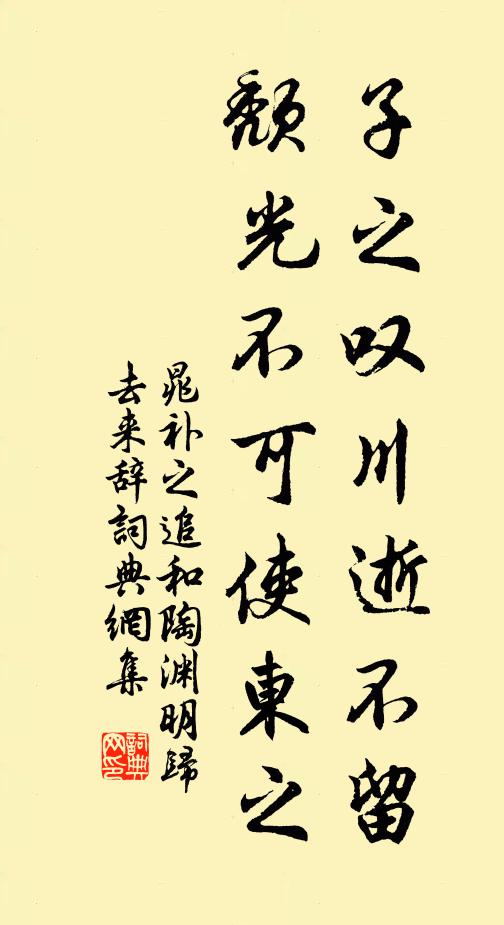 子之叹川逝不留
颓光不可使東之
晁补之追和陶渊明歸
去来辞詞典網集
詞典
网印